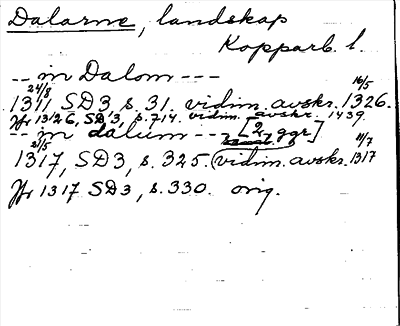 Dalarne, landskap
Kopparb. l.
-- in Dalom ---
24/8 16/5
1311, SD3, s. 31. vidim. avskr. 1326.
Jfr 1326, SD3, s. 714. vidim. avskr. 1439.
-- in dalum --- [2 ggr]
2/5 11/7
1317, SD3, s. 325. (vidim. avskr. 1317
Jfr 1317 SD3, s. 330. orig.